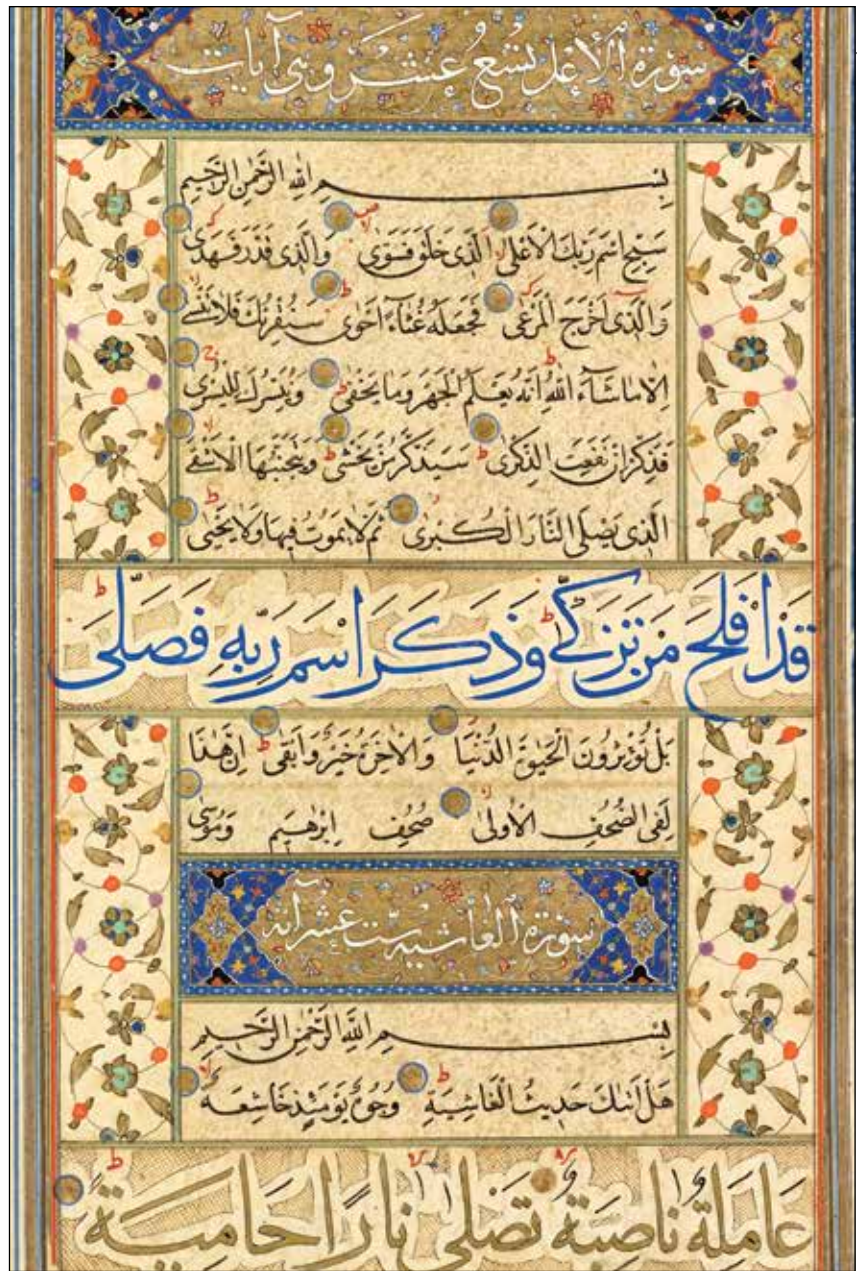 سورة الأعلى تسع عشر وهى آيات
بِسْمِ اللهِ الرَّحْمٰنِ الرَّحِيمِ
سَبِّحِ اسْمَ رَبِّكَ الْاَعْلٰى الَّذِى خَلَقَ فَسَوّٰى وَالَّذِى قَدَّرَ فَهَدٰى
وَالَّذِى اَخْرَجَ الْمَرْعٰى فَجَعَلَهُ غُثَاءً اَحْوٰى سَنُقْرِئُكَ فَلَا تَنْسٰى
اِلَّا مَا شَاءَ اللهُ اِنَّهُ يَعْلَمُ الْجَهْرَ وَمَا يَخْفٰى وَنُيَسِّرُكَ لِلْيُسْرٰى
فَذَكِّرْ اِنْ نَفَعَتِ الذِّكْرٰى سَيَذَّكَّرُ مَنْ يَخْشٰى وَيَتَجَنَّبُهَا الْاَشْقَى
الَّذِى يَصْلَى النَّارَ الْكُبْرٰى ثُمَّ لَا يَمُوتُ فِيهَا وَلَا يَحْيٰى
قَدْ اَفْلَحَ مَنْ تَزَكّٰى وَذَكَرَ اسْمَ رَبِّهِ فَصَلّٰى
بَلْ تُؤْثِرُونَ الْحَيٰوةَ الدُّنْيَا وَالْاٰخِرَةُ خَيْرٌ وَاَبْقٰى اِنَّ هٰذَا
لَفِى الصُّحُفِ الْاُولٰى صُحُفِ اِبْرٰهِيمَ وَمُوسٰى
سورة الغاشية ست عشر آية
بِسْمِ اللهِ الرَّحْمٰنِ الرَّحِيمِ
هَلْ اَتٰىكَ حَدِيثُ الْغَاشِيَةِ وُجُوهٌ يَوْمَئِذٍ خَاشِعَةٌ
عَامِلَةٌ نَاصِبَةٌ تَصْلٰى نَارًا حَامِيَةً